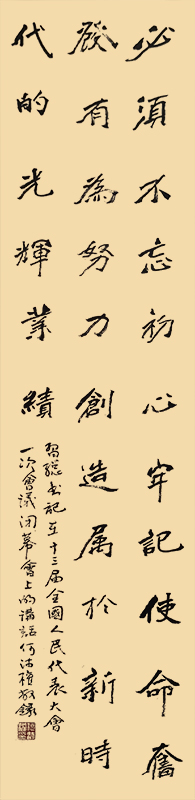 必須不忘初心牢記使命奮
發有為努力創造属於新時
代的光輝業績
習総书記在十三届全國人民代表大會
一次會議闭幕會上的講話何沛雄敬錄